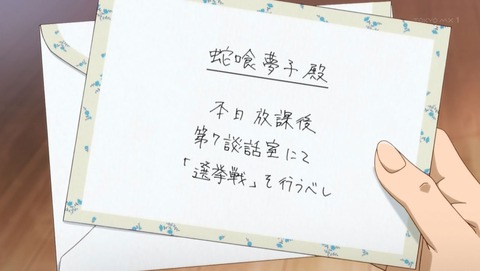 蛇喰夢子殿
本日放課後
第7談話室にて
「選挙戦」を行うべし